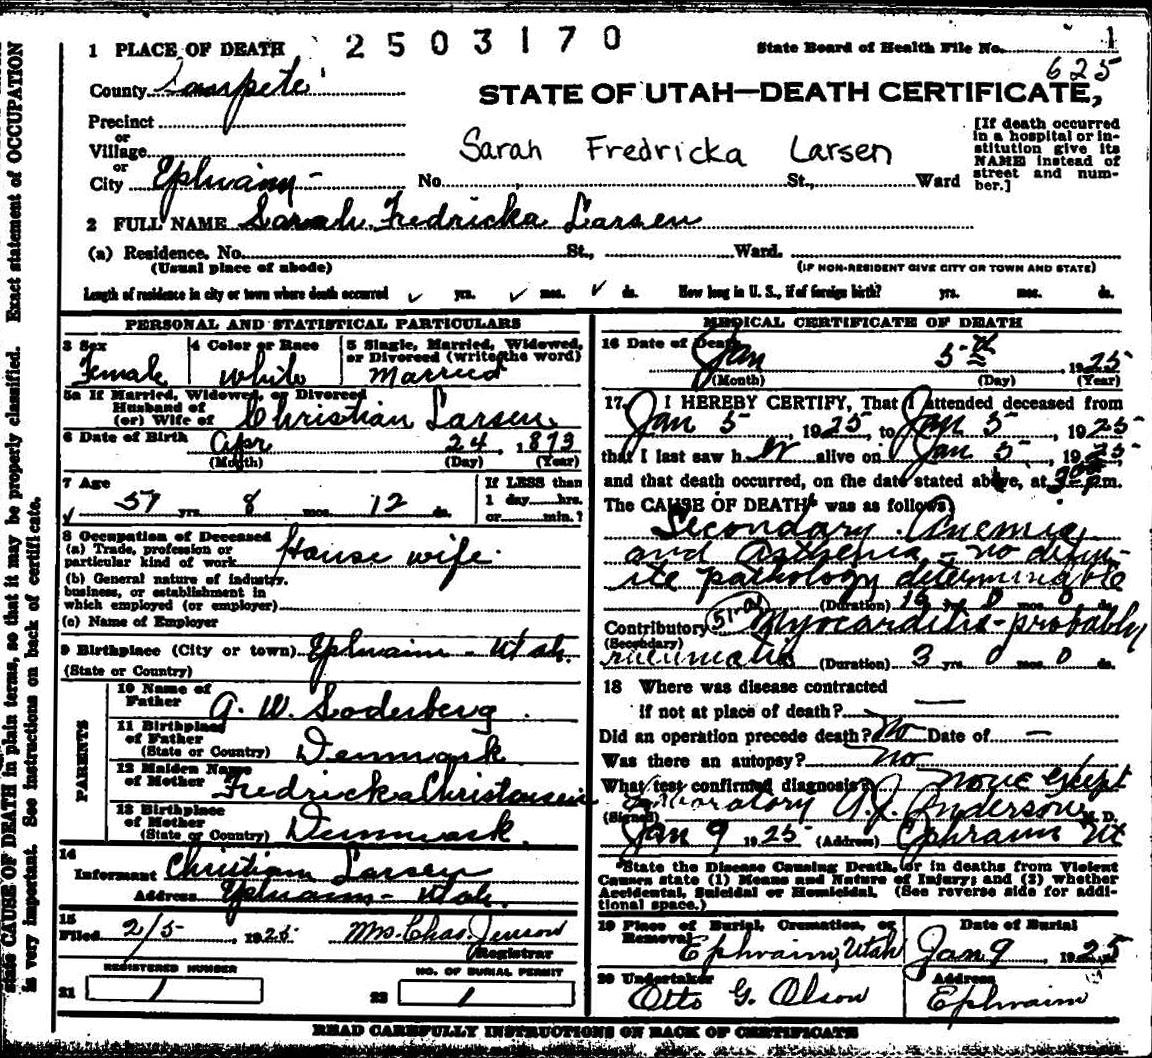 1 PLACE OF DEATH 2503170 State Board of Health File No. 1
625
County Sanpete
STATE OF UTAH—DEATH CERTIFICATE,
Precinct
or
Village
or
City Ephraim - No. St., Ward
Sarah Fredricka Larsen
[If death occurred
in a hospital or in-
stitution give its
NAME instead of
street and num-
ber.]
2 FULL NAME Sarah Fredricka Larsen
(a) Residence. No. St., Ward.
(Usual place of abode) (IF NON-RESIDENT GIVE CITY OR TOWN AND STATE)
Length of residence in city or town where death occurred ✓ yrs. ✓ mos. ✓ ds. How long in U. S., if of foreign birth? yrs. mos. ds.
PERSONAL AND STATISTICAL PARTICULARS
3 Sex 4 Color or Race 5 Single, Married, Widowed,
or Divorced (write the word)
Female white Married
5a If Married, Widowed, or Divorced
Husband of
(or) Wife of Christian Larsen
6 Date of Birth Apr 24, 1873
(Month) (Day) (Year)
7 Age If LESS than
1 day hrs.
or min.?
✓ 51 yrs. 8 mos. 12 ds.
8 Occupation of Deceased
(a) Trade, profession or
particular kind of work House wife
(b) General nature of industry,
business, or establishment in
which employed (or employer)
(c) Name of Employer
9 Birthplace (City or town) Ephraim - Utah.
(State or Country)
PARENTS
10 Name of
Father A. W. Soderberg
11 Birthplace
of Father
(State or Country) Denmark
12 Maiden Name
of Mother Fredricka Christensen
13 Birthplace
of Mother
(State or Country) Denmark
14
Informant Christian Larsen
Address Ephraim - Utah.
15
Filed 2/5, 1925 Mrs. Chas. Jenson
Registrar
REGISTERED NUMBER NO. OF BURIAL PERMIT
21 1 22 1
MEDICAL CERTIFICATE OF DEATH
16 Date of Death
Jan 5th 1925
(Month) (Day) (Year)
17. I HEREBY CERTIFY, That I attended deceased from
Jan 5, 1925, to Jan 5, 1925
that I last saw her alive on Jan 5, 1925
and that death occurred, on the date stated above, at 3 p.m.
The CAUSE OF DEATH* was as follows:
Secondary Anemia
and Asthenia - no defin-
ite pathology determinable
(Duration) yrs. 0 mos. 0 ds.
Contributory Myocarditis - probably
(Secondary)
rheumatic (Duration) 3 yrs. 0 mos. 0 ds.
18 Where was disease contracted
if not at place of death? —
Did an operation precede death? No Date of —
Was there an autopsy? no
What test confirmed diagnosis? none except
Laboratory
(Signed) A. J. Anderson M. D.
Jan 9 1925 (Address) Ephraim Ut
*State the Disease Causing Death, or in deaths from Violent
Causes state (1) Means and Nature of Injury; and (2) whether
Accidental, Suicidal or Homicidal. (See reverse side for addi-
tional space.)
19 Place of Burial, Cremation, or Date of Burial
Removal
Ephraim, Utah Jan 9, 1925
20 Undertaker Address
Otto G. Olson Ephraim
READ CAREFULLY INSTRUCTIONS ON BACK OF CERTIFICATE
state CAUSE OF DEATH in plain terms, so that it may be properly classified. Exact statement of OCCUPATION
is very important. See instructions on back of certificate.